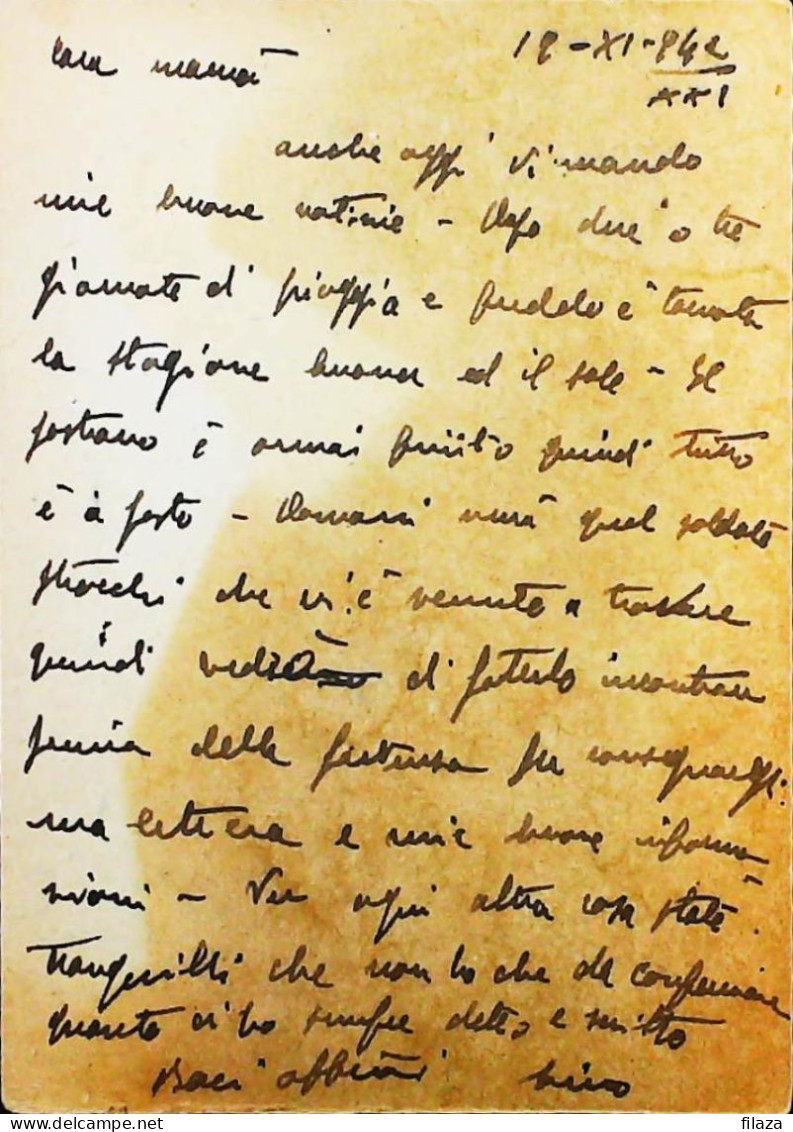 18-XI-942
XXI
cara mamã
anche oggi vi mando
mie buone notizie - Dopo due o tre
giornate di pioggia e freddo è tornata
la stagione buona ed il sole - Il
pastrano è ormai finito quindi tutto
è a posto - Domani verrà quel soldato
che vi è venuto a trovare
quindi di poterlo incontrare
prima della partenza per consegnargli
una lettera e mie buone informa
zioni - Per ogni altra cosa state
tranquilli che non ho che da confermare
quanto vi ho sempre detto e scritto
Baci
filaza